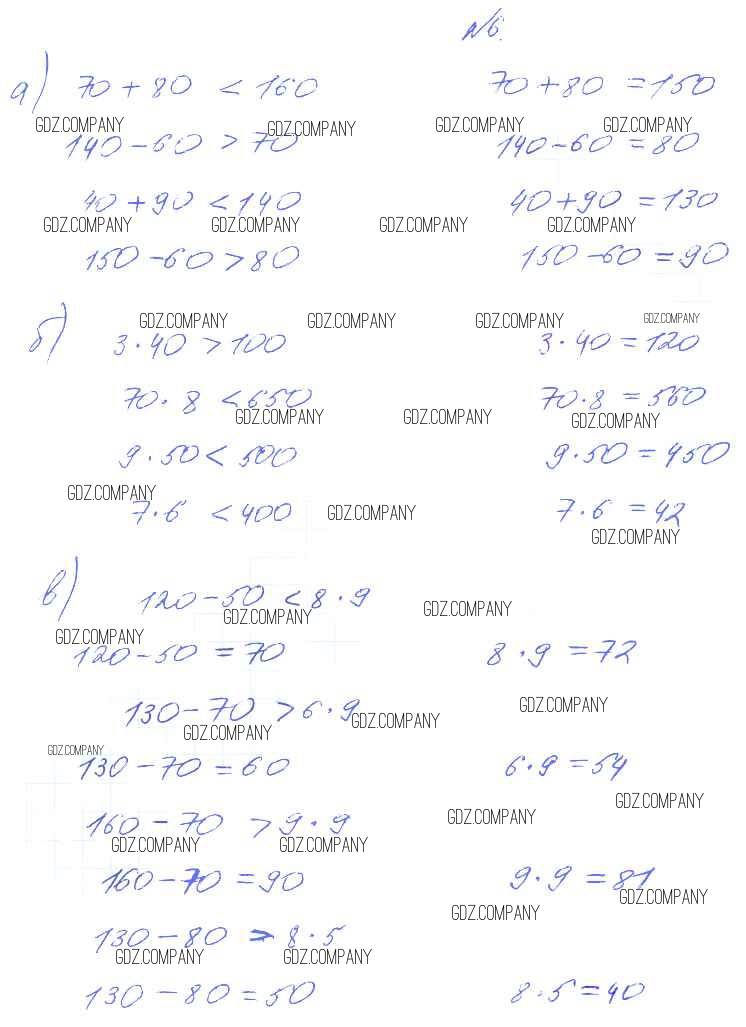 №6.
а) 70 + 80 < 160 70 + 80 = 150
GDZ.COMPANY GDZ.COMPANY GDZ.COMPANY GDZ.COMPANY
140 - 60 > 70 140 - 60 = 80
40 + 90 < 140 40 + 90 = 130
GDZ.COMPANY GDZ.COMPANY GDZ.COMPANY GDZ.COMPANY
150 - 60 > 80 150 - 60 = 90
GDZ.COMPANY GDZ.COMPANY GDZ.COMPANY GDZ.COMPANY
б) 3 · 40 > 100 3 · 40 = 120
70 · 8 < 650 70 · 8 = 560
GDZ.COMPANY GDZ.COMPANY GDZ.COMPANY
9 · 50 < 500 9 · 50 = 450
GDZ.COMPANY
7 · 6 < 400 7 · 6 = 42
GDZ.COMPANY
GDZ.COMPANY
в) 120 - 50 < 8 · 9
GDZ.COMPANY GDZ.COMPANY
GDZ.COMPANY
120 - 50 = 70 8 · 9 = 72
130 - 70 > 6 · 9
GDZ.COMPANY GDZ.COMPANY GDZ.COMPANY
GDZ.COMPANY
130 - 70 = 60 6 · 9 = 54
GDZ.COMPANY
160 - 70 > 9 · 9
GDZ.COMPANY
GDZ.COMPANY GDZ.COMPANY
160 - 70 = 90 9 · 9 = 81
GDZ.COMPANY
GDZ.COMPANY
130 - 80 > 8 · 5
GDZ.COMPANY GDZ.COMPANY
130 - 80 = 50 8 · 5 = 40